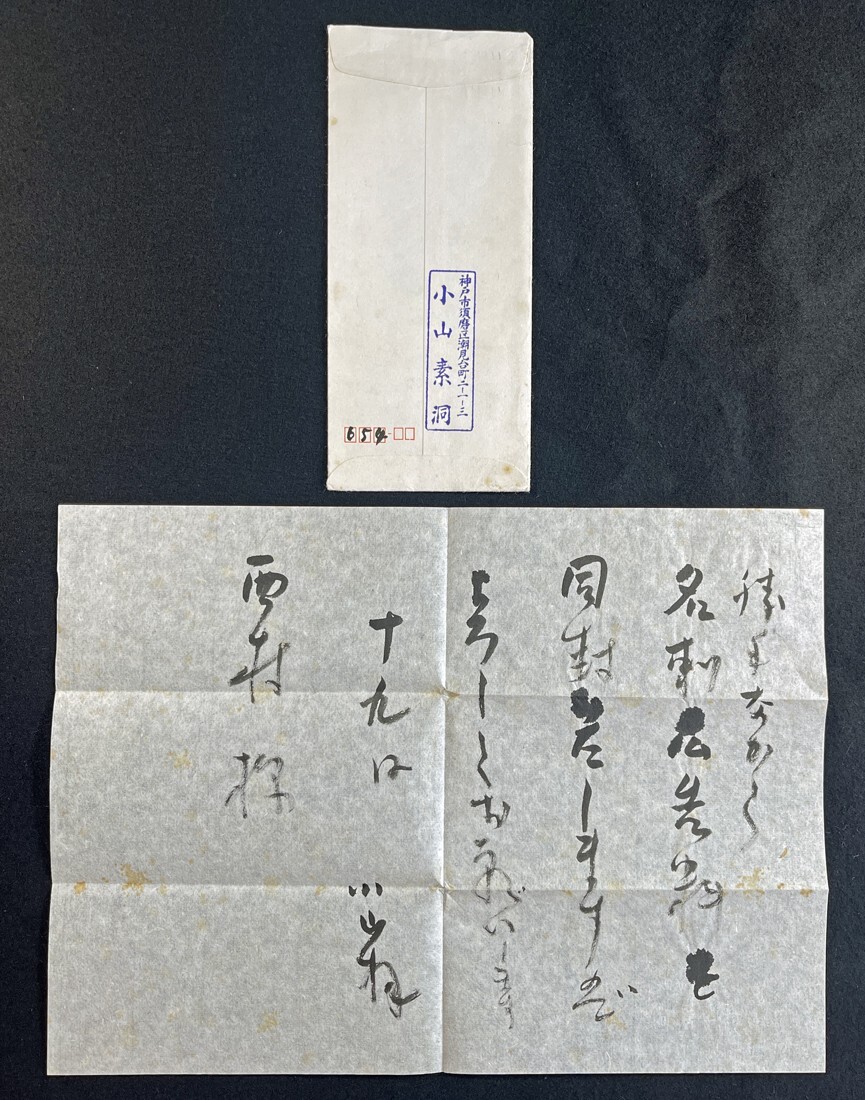 神戸市須磨区潮見台町二-一-三
小山素洞
654
勝手ながら
名刺広告料を
同封 致しますので
よろしくお願いします
十九日
小山
西村 様